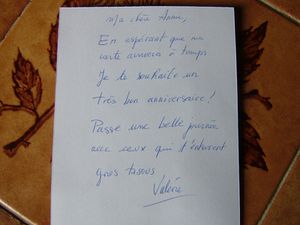 Ma chère Annie,
En espérant que ma
carte arrivera à temps
Je te souhaite un
très bon anniversaire !
Passe une belle journée
avec ceux qui t'entourent
gros bisous
Valérie